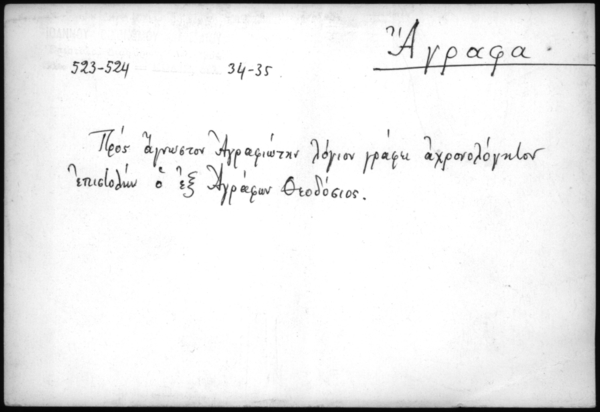 Ἄγραφα.
523-524 34-35
Πρός ἄγνωστον Ἀγραφιώτην λόγιον γράφει ἀχρονολόγητον
ἐπιστολήν ὁ ἐξ Ἀγράφων Θεοδόσιος.